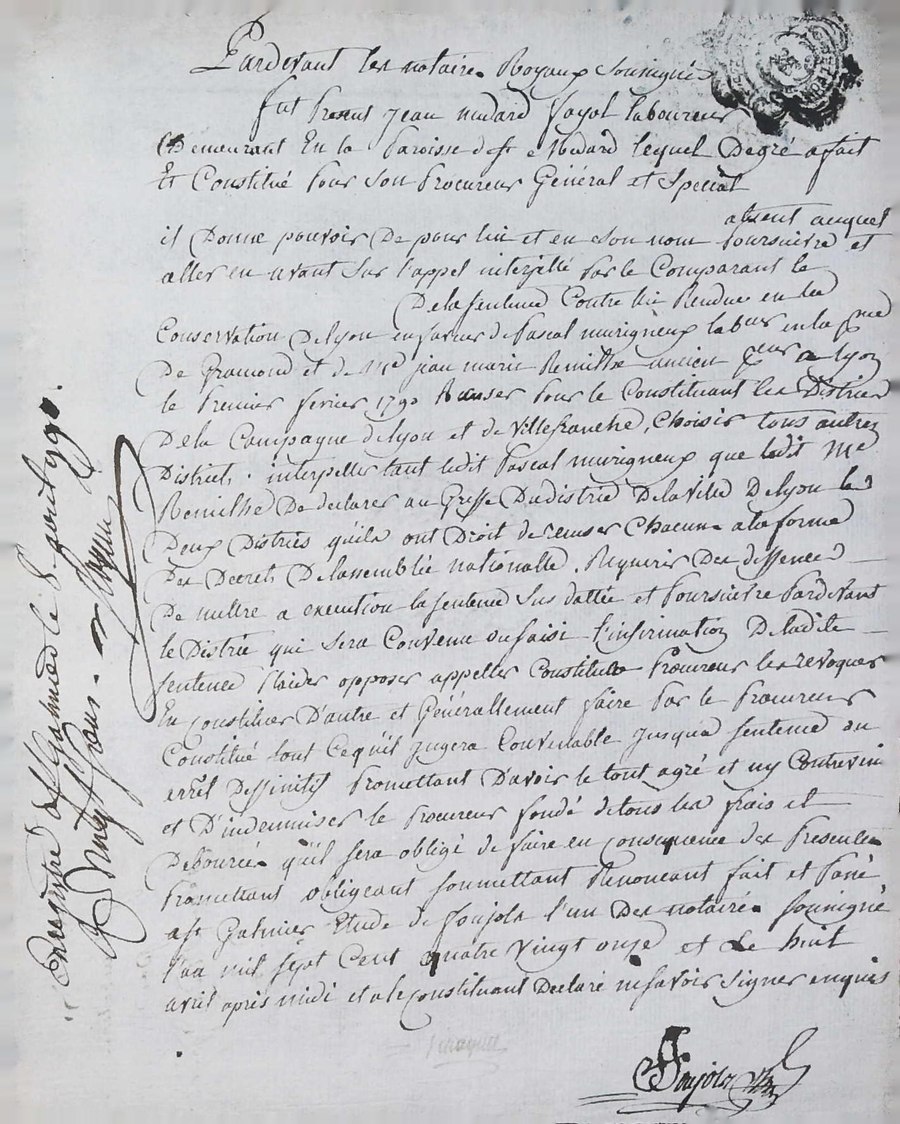 Pardevant les notaires Royaux soussignés
fut Present Jean medard fayol laboureur
Demeurant En la Paroisse de st Medard lequel Degré a fait
Et Constitué Pour son Procureur Général et Special
absent auquel
il Donne pouvoir De pour lui et en son nom Poursuivre et
aller en avant sur l'appel interjetté Par le Comparant le
De la sentence Contre lui Rendue en la
Conservation De lyon en faveur de Pascal murigneux labeur en la
De Gramond et de Me jean marie Remilthe ancien a lyon
le Premier fevrier 1790 Recuser Pour le Constituant les Districts
De la Campagne de lyon et de villefranche, Choisir tous autres
Districts. interpeller tant ledit Pascal murigneux que ledit Me
Remilthe De declarer au Greffe Du district De la ville De lyon les
Deux Districts qu'ils ont Droit de recuser Chacun a la forme
Des Decrets De lassemblée nationalle. Requerir Des deffences
De mettre a execution la sentence sus dattée et Poursuivre Pardevant
le District qui sera Convenu ou saisi l'infirmation De ladite
sentence Plaider opposer appeller Constituer Procureur les revoquer
En Constituer D'autre et Générallement faire Par le Procureur
Constitué tout Ce qu'il jugera Convenable jusqu'a sentence ou
errêt Deffinitif Promettant D'avoir le tout agré et ny Contrevin
et D'indemniser le Procureur fondé de tous les frais et
Debourcés qu'il sera obligé de faire en consequence des Presentes
Promettant obligeant soumettant Renonçant fait et Passé
a st Galmier Etude de Poujols l'un Des notaires soussigné
l'an mil sept Cent quatre vingt onze et Le huit
avril après midi et a le Constituant Declaré ne savoir signer enquis
Poujols
enregistré a st Galmier le 8